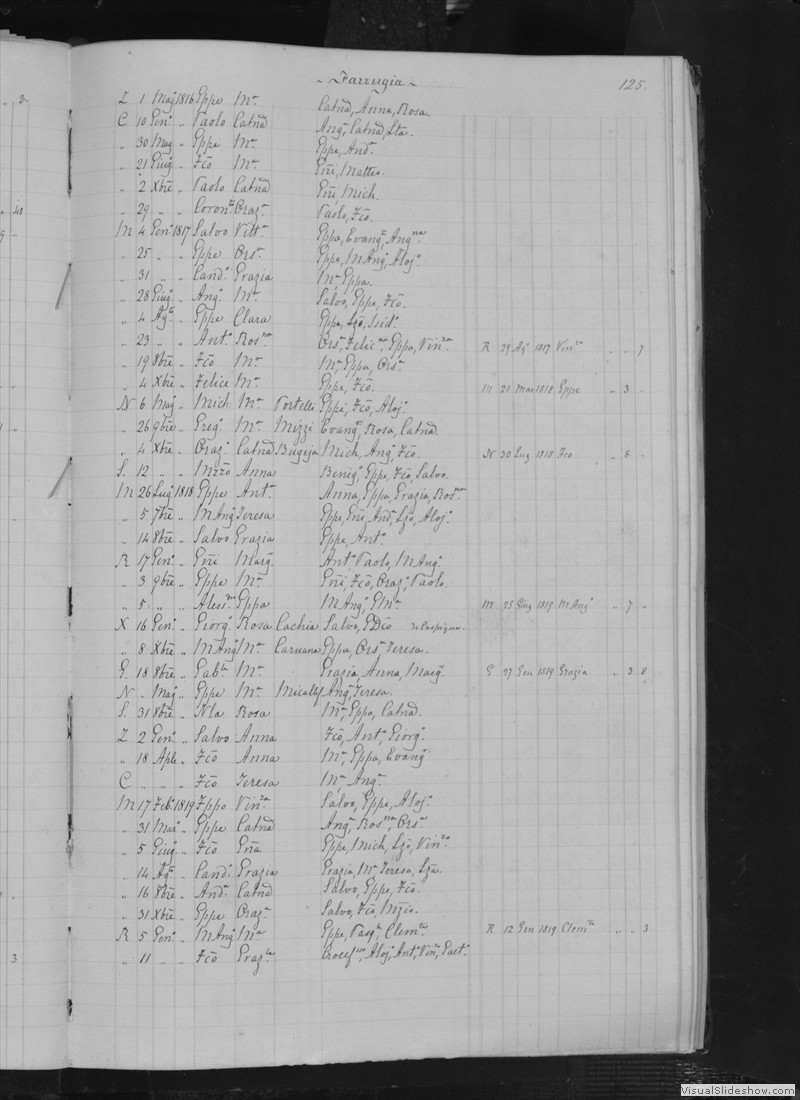 Farrugia
125.
Z 1 Mag 1816 Eppe Mª Catñd, Anna, Rosa.
C 10 Genº „ Paolo Catñd Angª, Catñd, Lta.
„ 30 Mag „ Eppe Mª Eppe, Andª.
„ 21 Giug „ Fcõ Mª Gñi, Matteo.
„ 2 Xbre „ Paolo Catñd Gñi, Mich.
„ 29 „ „ Coronª Grazª Paolo, Fcõ.
M 4 Genº 1817 Salvo Vittª Eppa, Evangª, Angna.
„ 25 „ „ Eppe Orsª Eppe, MAngº, Alojº.
„ 31 „ „ Candº Grazia Mª, Eppa.
„ 28 Giugº „ Angº Mª Salvo, Eppe, Fcõ.
„ 4 Agº „ Eppe Clara Eppe, Lzõ, Isidº.
„ 23 „ „ Antº Rosna Orsª, Felicna, Eppa, Vinza. R 29 Agº 1817 Vinza „ „ 7
„ 19 8bre „ Fcõ Mª Mª, Eppa, Orsª.
„ 4 Xbre „ Felice Mª Eppe, Fcõ. M 21 Mar 1818 Eppe „ 3 „
N 6 Mag „ Mich: Mª Portelli Eppe, Fcõ, Alojº.
„ 26 9bre „ Gregº Mª Mizzi Evangª, Rosa, Catñd.
„ 4 Xbre „ Grazº Catñd Bugeja Mich, Angº, Fcõ. N 30 Lug 1818 Fco „ 8 „
S. 12 „ „ Mzzõ Anna Benigº, Eppe, Fcõ, Salvo.
M 26 Lug 1818 Eppe Antª Anna, Eppa, Grazia, Rosna.
„ 5 7bre „ MAngº Teresa Eppe, Gñi, Andª, Lzõ, Alojº.
„ 14 8bre „ Salvo Grazia Eppe, Antº.
R 17 Genº „ Gñi Margª Antº, Paolo, MAngº.
„ 3 9bre „ Eppe Mª Gñi, Fcõ, Grazº, Paolo.
„ 5 „ „ Alessdro Eppa MAngº, GMª. M 25 Giug 1819 MAngº „ 7 „
X 16 Genº „ Giorgº Rosa Cachia Salvo, GDco di Cospigua.
„ 8 Xbre „ MAngº Mª Caruana Eppa, Orsª, Teresa.
G 18 8bre „ Gable Mª Grazia, Anna, Margª. G 27 Gen 1819 Grazia „ 3 8
N „ Mag „ Eppe Mª Micallef Angª, Teresa.
S. 31 8bre „ Nla Rosa Mª, Eppa, Catñd.
Z 2 Genº „ Salvo Anna Fcõ, Antº, Giorgº.
„ 18 Aple „ Fcõ Anna Mª, Eppa, Evangª
C „ „ „ Fcõ Teresa Mª, Angª.
M 17 Feb. 1819 Fppo Vinza Salvo, Eppe, Alojº.
„ 31 Marº „ Eppe Catñd Angª, Rosna, Orsª.
„ 5 Giugº „ Fcõ Gña Eppe, Mich, Lzõ, Vinzo
„ 14 Agº „ Candº Grazia Grazia, Mª, Teresa, Lza.
„ 16 8bre „ Andª Catñd Salvo, Eppe, Fcõ.
„ 31 Xbre „ Eppe Grazª Salvo, Fcõ, Mzzõ.
R 5 Genº „ MAngº Mª Eppe, Pasqle, Clemte. R 12 Gen 1819 Clemte „ „ 3
„ 11 „ „ Fcõ Grazla Crocefso, Alojº, Antº, Vinzo, Gaetº.
VisualSlideshow.com